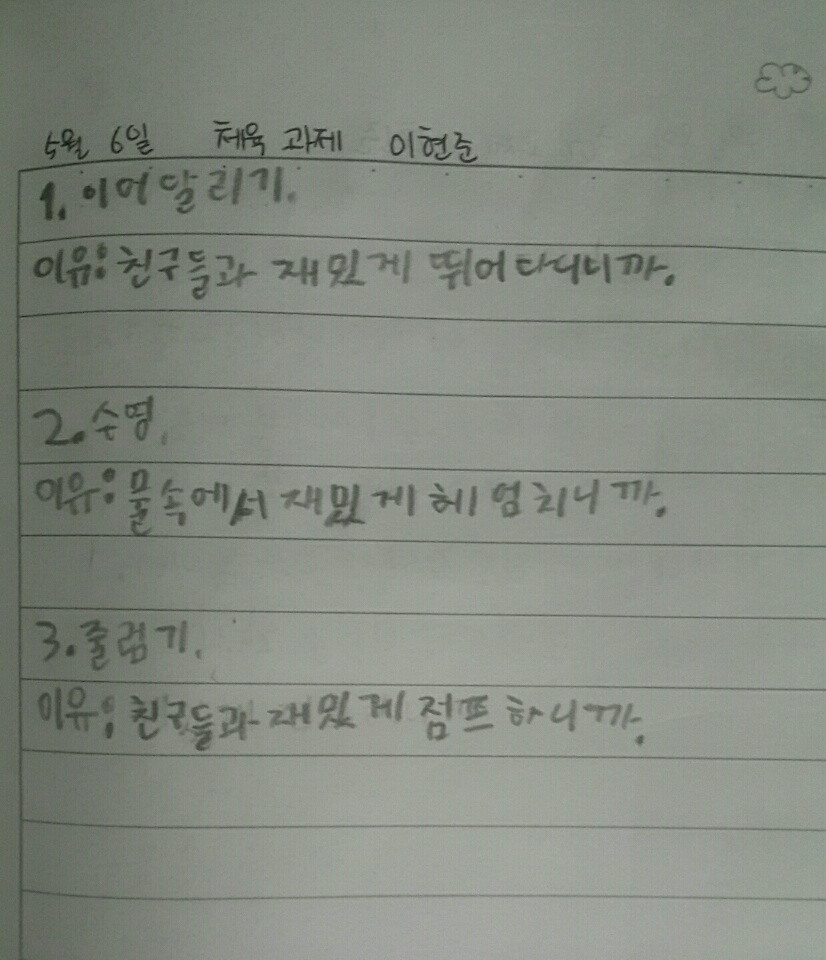 5월 6일 체육 과제 이현준
1. 이어달리기.
이유: 친구들과 재밌게 뛰어다니니까.
2. 수영.
이유: 물속에서 재밌게 헤엄치니까.
3. 줄넘기.
이유: 친구들과 재밌게 점프하니까.